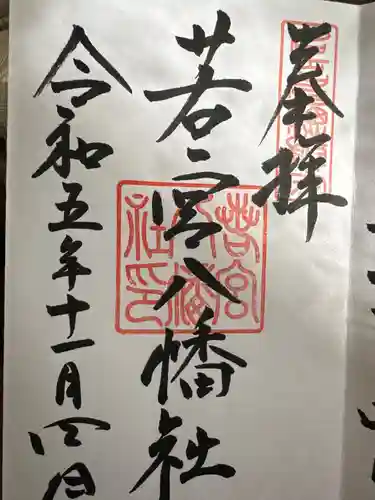 奉拝
若宮八幡社
令和五年十一月四日
若宮
八幡
社印